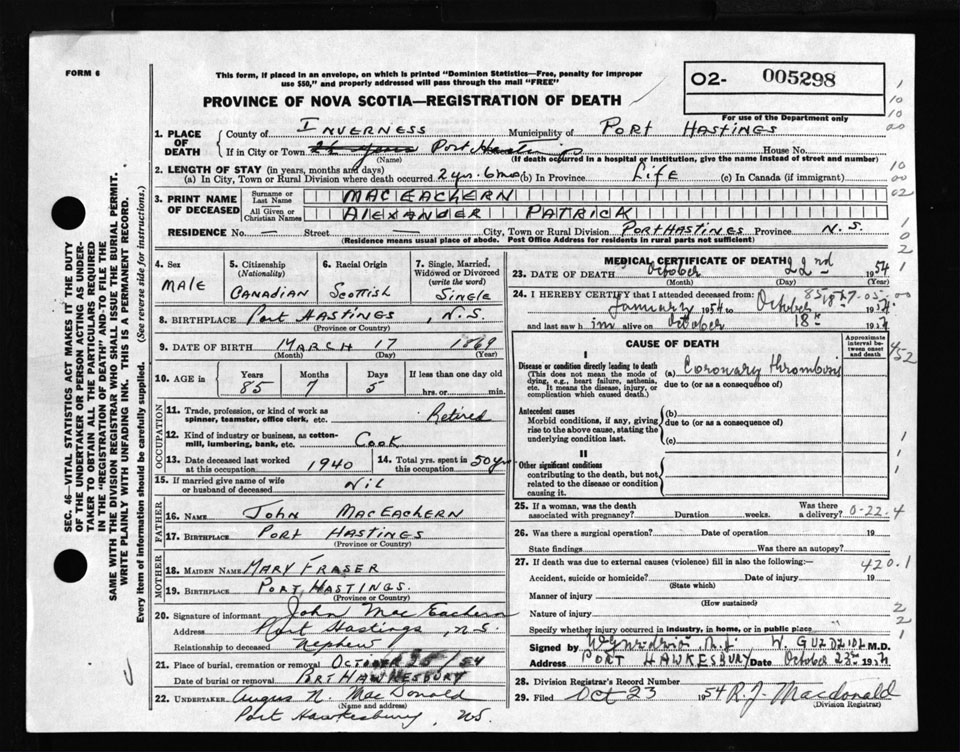 FORM 6
This form, if placed in an envelope, on which is printed "Dominion Statistics—Free, penalty for improper
use $50," and properly addressed will pass through the mail "FREE"
PROVINCE OF NOVA SCOTIA—REGISTRATION OF DEATH
O2- 005298
For use of the Department only
1. PLACE OF DEATH
County of INVERNESS Municipality of PORT HASTINGS
If in City or Town Port Hastings House No.
(Name) (If death occurred in a hospital or institution, give the name instead of street and number)
2. LENGTH OF STAY (in years, months and days)
(a) In City, Town or Rural Division where death occurred 2 yrs. 6 mo (b) In Province Life (c) In Canada (if immigrant)
3. PRINT NAME OF DECEASED
Surname or Last Name MACEACHERN
All Given or Christian Names ALEXANDER PATRICK
RESIDENCE No. — Street — City, Town or Rural Division PORT HASTINGS Province N.S.
(Residence means usual place of abode. Post Office Address for residents in rural parts not sufficient)
4. Sex
MALE
5. Citizenship
(Nationality)
CANADIAN
6. Racial Origin
SCOTTISH
7. Single, Married, Widowed or Divorced
(write the word)
SINGLE
8. BIRTHPLACE PORT HASTINGS, N.S.
(Province or Country)
9. DATE OF BIRTH MARCH 17 1869
(Month) (Day) (Year)
10. AGE in
Years Months Days If less than one day old
85 7 5 hrs. or min.
OCCUPATION
11. Trade, profession, or kind of work as
spinner, teamster, office clerk, etc. Retired
12. Kind of industry or business, as cotton-
mill, lumbering, bank, etc. Cook
13. Date deceased last worked
at this occupation 1940
14. Total yrs. spent in
this occupation 50 yrs
15. If married give name of wife
or husband of deceased Nil
FATHER
16. NAME JOHN MACEACHERN
17. BIRTHPLACE PORT HASTINGS
(Province or Country)
MOTHER
18. MAIDEN NAME MARY FRASER
19. BIRTHPLACE PORT HASTINGS.
(Province or Country)
20. Signature of informant John MacEachern
Address Port Hastings, N.S.
Relationship to deceased nephew
21. Place of burial, cremation or removal OCTOBER 25/54
Date of burial or removal PORT HAWKESBURY
22. UNDERTAKER Angus N. MacDonald
(Name and address)
Port Hawkesbury, N.S.
MEDICAL CERTIFICATE OF DEATH
23. DATE OF DEATH October 22nd 1954
(Month) (Day) (Year)
24. I HEREBY CERTIFY that I attended deceased from
January 1954 to October 18th 1954
and last saw him alive on October 18th 19
CAUSE OF DEATH
Approximate interval between onset and death
I
Disease or condition directly leading to death
(This does not mean the mode of dying, e.g., heart failure, asthenia, etc. It means the disease, injury, or complication which caused death.)
(a) Coronary thrombosis
due to (or as a consequence of)
Antecedent causes
Morbid conditions, if any, giving rise to the above cause, stating the underlying condition last.
(b)
due to (or as a consequence of)
(c)
II
Other significant conditions
contributing to the death, but not related to the disease or condition causing it.
25. If a woman, was the death
associated with pregnancy? Duration weeks. Was there a delivery? 0-22.4
26. Was there a surgical operation? Date of operation 19
State findings Was there an autopsy?
27. If death was due to external causes (violence) fill in also the following:—
420.1
Accident, suicide or homicide? Date of injury 19
(State which)
Manner of injury
(How sustained)
Nature of injury
Specify whether injury occurred in industry, in home, or in public place
Signed by M.D.
Address PORT HAWKESBURY Date October 23rd 1954
28. Division Registrar's Record Number
29. Filed Oct 23 1954 R.J. Macdonald
(Division Registrar)
SEC. 46—VITAL STATISTICS ACT MAKES IT THE DUTY
OF THE UNDERTAKER OR PERSON ACTING AS UNDER-
TAKER TO OBTAIN ALL THE PARTICULARS REQUIRED
IN THE "REGISTRATION OF DEATH" AND TO FILE THE
SAME WITH THE DIVISION REGISTRAR WHO SHALL ISSUE THE BURIAL PERMIT.
WRITE PLAINLY WITH UNFADING INK. THIS IS A PERMANENT RECORD.
Every item of information should be carefully supplied. (See reverse side for instructions.)